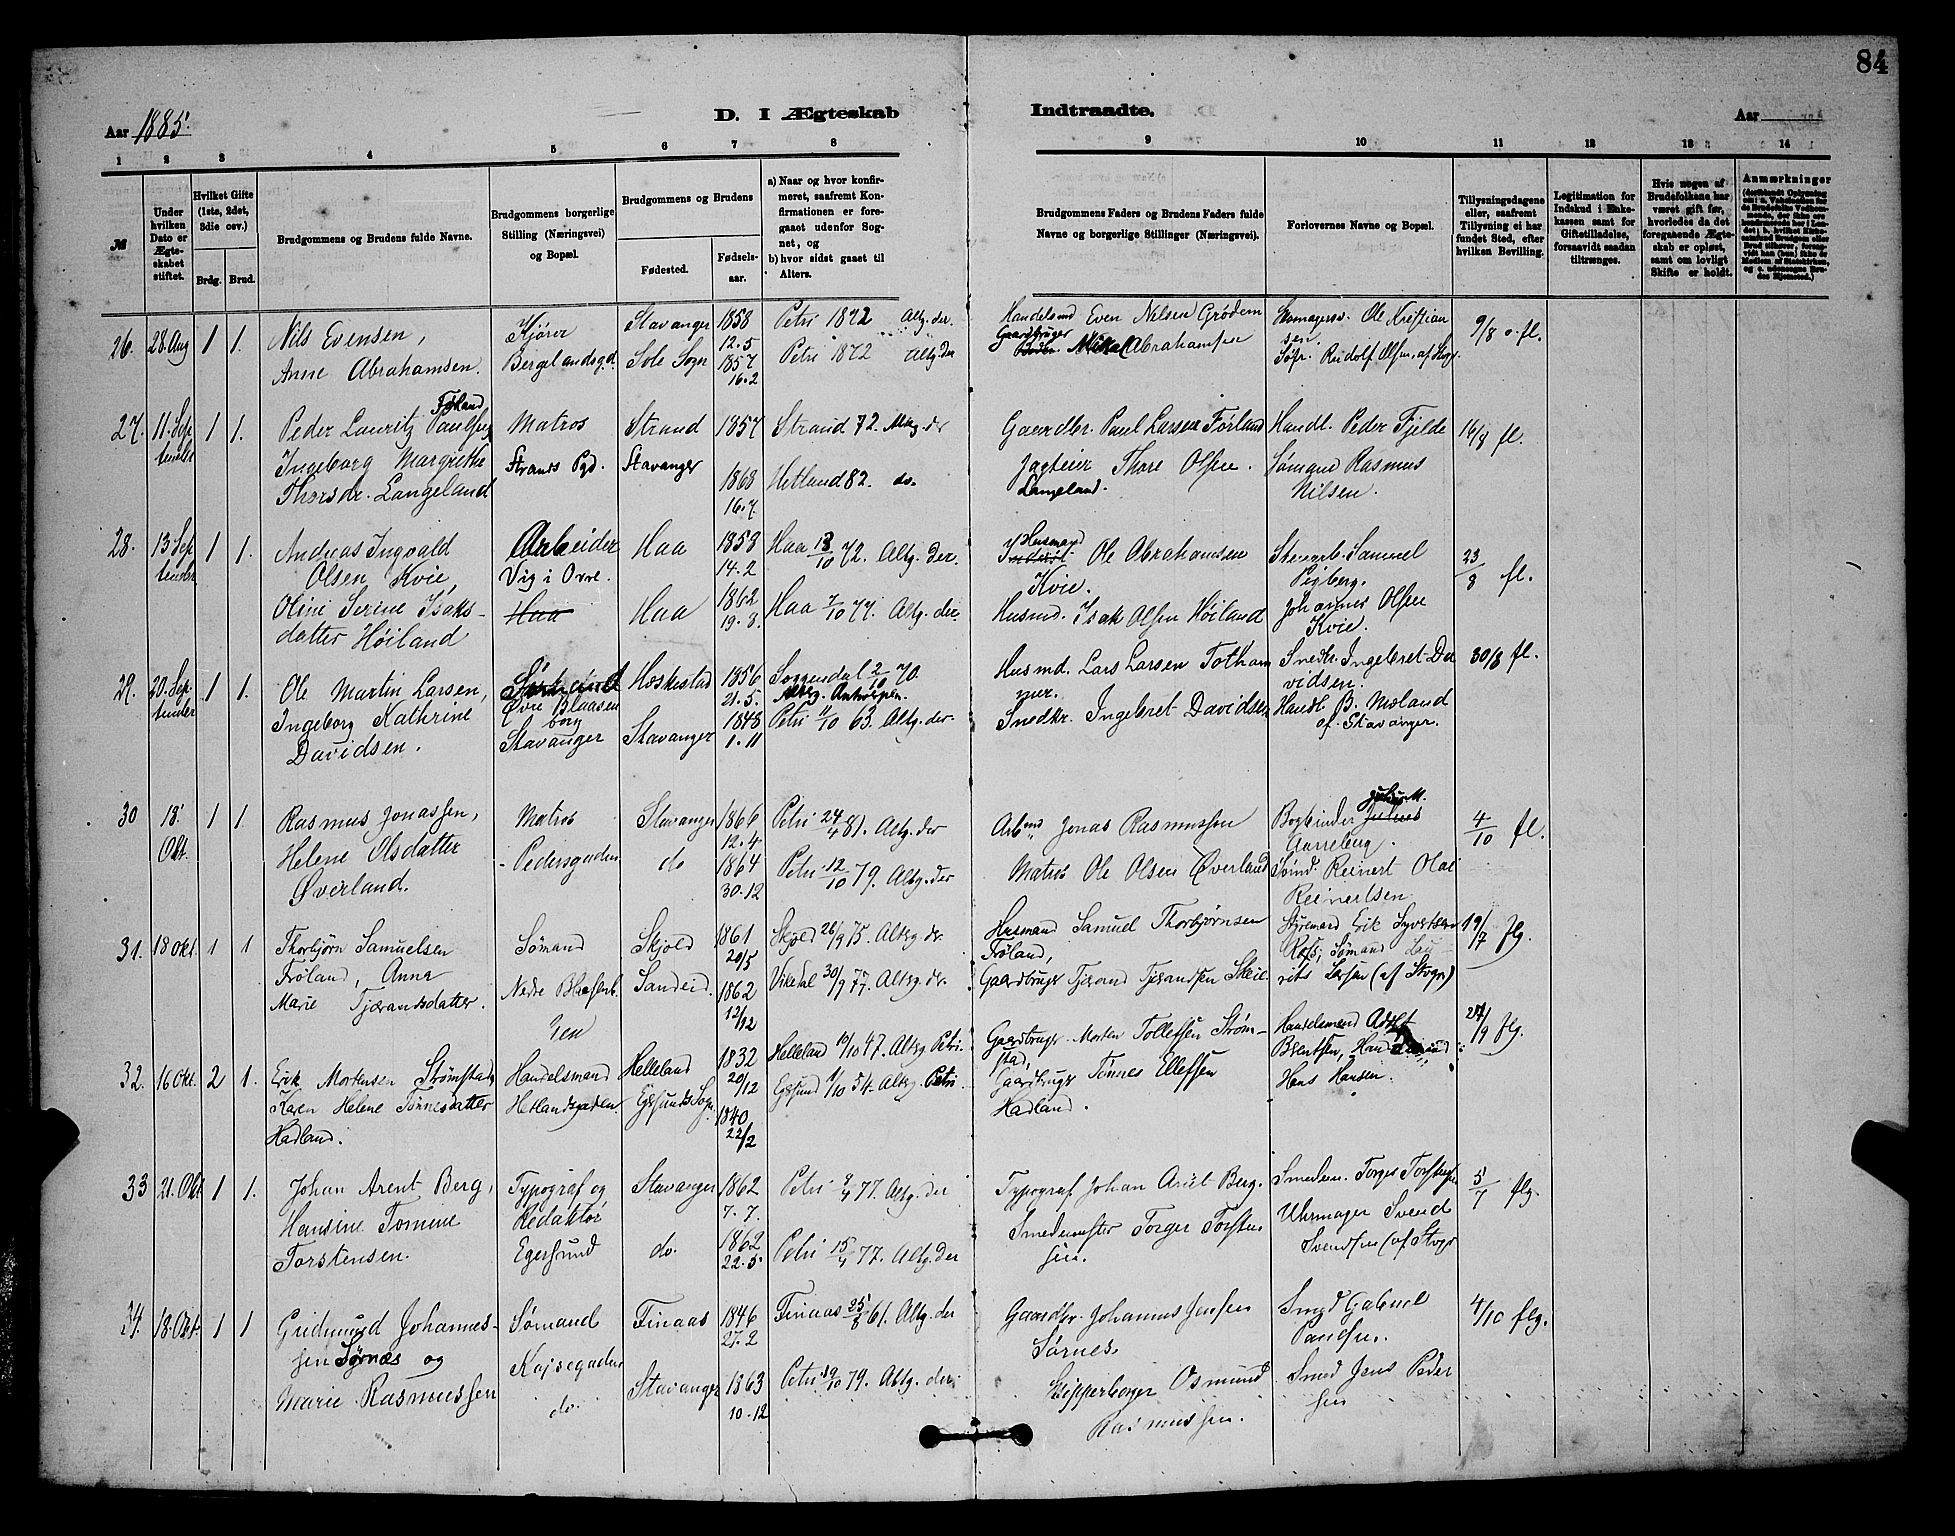 84
Aar 1885.
D. I Ægteskab Indtraadte.
Aar
1 2 3 4 5 6 7 8 9 10 11 12 13 14
№
Under hvilken Dato er Ægteskabet stiftet.
Hvilket Gifte (1ste, 2det, 3die osv.)
Brdg. Brud.
Brudgommens og Brudens fulde Navne.
Brudgommens borgerlige Stilling (Næringsvei) og Bopæl.
Brudgommens og Brudens
Fødested.
Fødselsaar.
a) Naar og hvor konfirmeret, saafremt Konfirmationen er foregaaet udenfor Sognet, og
b) hvor sidst gaaet til Alters.
Brudgommens Faders og Brudens Faders fulde Navne og borgerlige Stillinger (Næringsvei).
Forlovernes Navne og Bopæl.
Tillysningsdagene eller, saafremt Tillysning ei har fundet Sted, efter hvilken Bevilling.
Legitimation for Indskud i Enkekassen samt for Giftetilladelse, forsaavidt saadan tiltrænges.
Hvis nogen af Brudefolkene har været gift før, hvorledes da det foregaaende Ægteskab er opløst, samt om lovligt Skifte er holdt.
Anmærkninger
26. 28 Aug 1 1. Nils Evensen, Kjører Stavanger 1858 Petri 1872 Altg. der. Handelsmd Even Nilsen Grødem Ole Kristian 9/8 o. fl.
12.5 Gaardbruger sen
Anne Abrahamsen. Berglandsgd. Sole Sogn 1857 Petri 1872 Altg. der Mikal Abrahamsen Rudolf Olsen, af Stgr.
16.2
Førland
27. 11. September 1 1. Peder Lauritz Paulsen Matros Strand 1857 Strand 72. Altg. der Gaardbr. Paul Larsen Førland Handl. Peder Fjelde 16/8 fl.
Ingeborg Margrethe Strands Pgd. Stavanger 1868 Hetland 82. do. Jagteier Thore Olsen. Sømand Rasmus
Thorsdr. Langeland 16.7. Langeland. Nilsen.
28. 13 September 1 1. Andreas Ingvald Arbeider Haa 1858 Haa 13/10 72. Altg. der. Husmand Ole Abrahamsen Samuel 23/8 fl.
Olsen Kvie, Vig i Ovre. 14.2 Kvie.
Oline Serine Isaks- Haa Haa 1862 Haa 7/10 77. Altg. der. Husmd. Isak Olsen Høiland Johannes Olsen
datter Høiland 19.8. Kvie.
29. 20. September 1 1. Ole Martin Larsen, Heskestad 1856 Soggendal 2/10 70. Husmd. Lars Larsen Snedk. Ingebret Da 30/8 fl.
Øvre Blaasen 21.5. Altg. Antwerpen. vidsen.
Ingeborg Kathrine borg 1848 Petri 11/10 63. Altg. der. Snedkr. Ingebret Davidsen Handl B. Moland
Davidsen. Stavanger Stavanger 1.11 af Stavanger.
30 18. Okt. 1 1. Rasmus Jonassen, Matros Stavanger 1866 Petri 24/4 81. Altg. der Arbmd Jonas Rasmussen Bogbinder Julius M. 4/10 fl.
12.4 Aarreberg.
Helene Olsdatter Pedersgaden do 1864 Petri 12/10 79. Altg. der Matros Ole Olsen Øverland Sømd. Reinert Olai
Øverland. 30.12 Reinertsen
31. 18 Okt. 1 1 Thorbjørn Samuelsen Sømand Skjold 1861 Skjold 26/9 75. Altg. dr. Husmand Samuel Thorbjørnsen Styrmand Erik Syvertsen 19/7 flg.
20/5 Frøland, Sømand Lau
Frøland, Anna Nedre Blaasenb. Sandeid. 1862 Vikedal 30/9 77. Altsg. dr. Gaardbruger Tjerand Tjerandsen Skeie. rits Larsen (af Stvgr)
Marie Tjærandsdatter. 12/12
32. 16 Okt. 2 1. Erik Mortensen Strømstad, Handelsmand Helleland 1832 Helleland 10/10 47. Altsg Petri. Gaardbruger Morten Tollefsen Strøm- Handelsmand Adolf 27/9 flg.
20/12 stad, Berentsen, Handelsmand
Karen Helene Tønnesdatter Hetlandsgaden. Egersunds Sogn 1840 Egersund 1/10 54. Altsg. Petri Gaardbruger Tønnes Ellefsen Hans Hansen.
Hadland. 22/2 Hadland.
33 21. Okt 1 1. Johan Arent Berg, Typograf og Stavanger 1862 Petri 9/4 77. Altg. der Typograf Johan Arent Berg. Smedem. Torger Torstensen 5/7 flg.
Redaktør 7.7.
Hansine Tomine Egersund do. 1862 Petri 15/4 77. Altg. der Smedemester Torger Torsten Uhrmager Svend
Torstensen. 22.5. sen. Svendsen (af Stvgr
34. 18. Okt. 1 1 Gudmund Johannes- Sømand Finaas 1846 Finaas 25/8 61. Altg. der Gaardbr. Johannes Jensen Smed Gabriel 4/10 flg.
sen Sørnæs og 27.2 Sørnes. Paulsen.
Marie Rasmussen Kajsegaden Stavanger 1863 Petri 10/10 79. Altg. der. Skipperborger Osmund Smed Jens Peder
do. 10.12 Rasmussen. sen